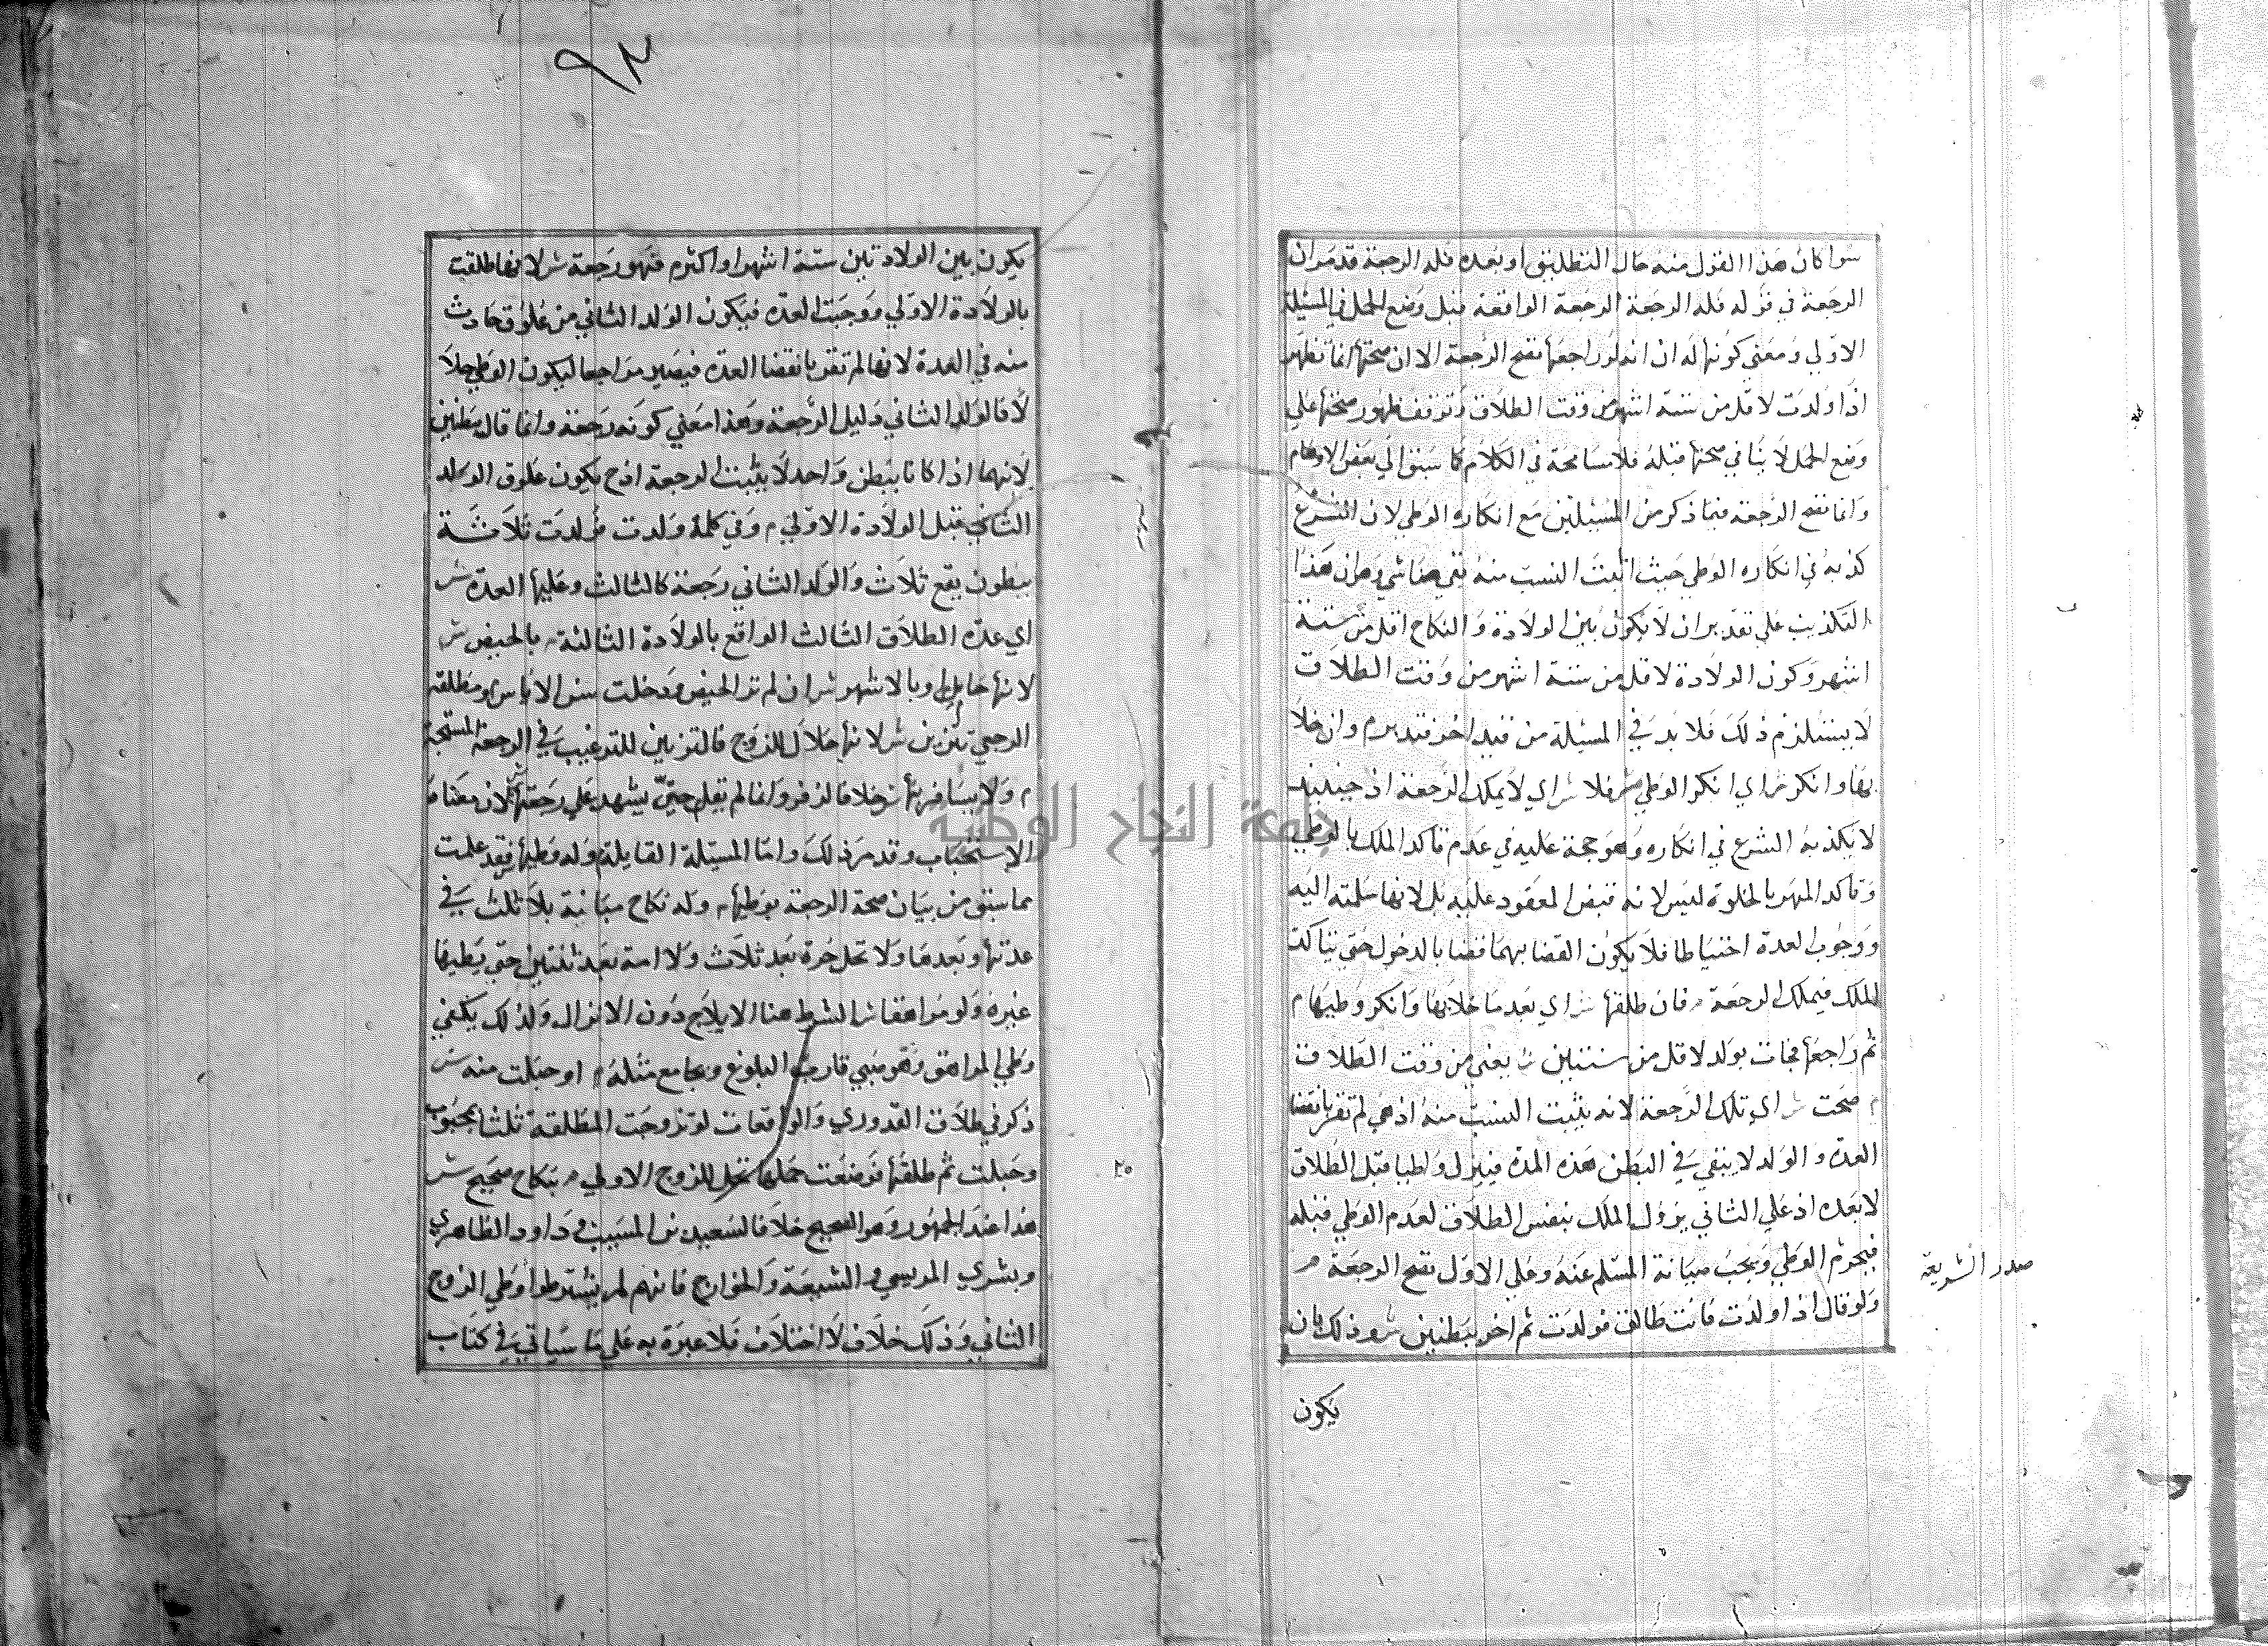 سوا كان هذا القول منه حال التطليق او بعده فله الرجعة قد مر ان
الرجعة في قوله فله الرجعة الرجعة الواقعة قبل وضع الحمل في المسئلة
الاولي ومعني كونها له ان انه لو راجعها تصح الرجعة الا ان صحتها انما تظهر
اذا ولدت لاقل من ستة اشهر من وقت الطلاق وتوقف ظهور صحتها علي
وضع الحمل لا ينافي صحتها قبله فلا مسامحة في الكلام كما سبق الي بعض الاوهام
وانما تصح الرجعة فيما ذكر من المسئلتين مع انكاره الوطي لان الشرع
كذبه في انكاره الوطي حيث اثبت النسب منه بقي هنا شي وهو ان هذا
التكذيب علي تقدير ان لا يكون بين الولادة والنكاح اقل من ستة
اشهر وكون الولادة لاقل من ستة اشهر من وقت الطلاق
لا يستلزم ذلك فلا بد في المسئلة من قيد اخر فتدبر م وان خلا
بها وانكر ش اي انكر الوطي م فلا ش اي لا يملك الرجعة اذ حينئذ
لا يكذبه الشرع في انكاره وهو حجة عليه في عدم تاكد الملك بالوطي
وتاكد المهر بالخلوة ليس لانه قبض المعقود عليه بل لانها سلمته اليه
ووجوب العدة احتياطا فلا يكون القضا بهما قضا بالدخول حتي يتاكد
الملك فيملك الرجعة م فان طلقها ش اي بعد ما خلا بها وانكر وطيها م
ثم راجعها فجات بولد لاقل من سنتين ش يعني من وقت الطلاق
م صحت ش اي تلك الرجعة لانه يثبت النسب منه اذ هي لم تقر بانقضا
العدة والولد لا يبقي في البطن هذه المدة فينزل واطيا قبل الطلاق
لا بعده اذ علي الثاني يزول الملك بنفس الطلاق لعدم الوطي قبله
فيحرم الوطي ويجب صيانة المسلم عنه وعلي الاول تصح الرجعة م
ولو قال اذا ولدت فانت طالق فولدت ثم اخر ببطنين ش وذلك بان
صدر الشريعة
يكون
٩٢
يكون بين الولادتين ستة اشهر او اكثر م فهو رجعة ش لانها طلقت
بالولادة الاولي ووجبت العدة فيكون الولد الثاني من علوق حادث
منه في العدة لانها لم تقر بانقضا العدة فيصير مراجعا ليكون الوطي حلالا
فالولد الثاني دليل الرجعة وهذا معني كونه رجعة وانما قال ببطنين
لانهما اذا كانا ببطن واحد لا يثبت الرجعة اذ ح يكون علوق الولد
الثاني قبل الولادة الاولي م وفي كلما ولدت فولدت ثلاثة
ببطون يقع ثلاث والولد الثاني رجعة كالثالث وعليها العدة ش
اي عدة الطلاق الثالث الواقع بالولادة الثالثة م بالحيض ش
لانها حايل او بالاشهر ش ان لم تر الحيض ودخلت سن الاياس م ومطلقة
الرجعي تتزين ش لانها حلال للزوج فالتزيين للترغيب في الرجعة المستحبة
م ولا يسافر بها ش خلافا لزفر وانما لم يقل حتي يشهد علي رجعتها لان معناه
الاستحباب وقد مر ذلك واما المسئلة القايلة وله وطيها فقد علمت
مما سبق من بيان صحة الرجعة بوطيها م وله نكاح مبانة بلا ثلث في
عدتها وبعدها ولا تحل حرة بعد ثلاث ولا امة بعد ثنتين حتي يطيها
غيره ولو مراهقا ش الشرط هنا الايلاج دون الانزال ولذلك يكفي
وطي المراهق وهو صبي قارب البلوغ ويجامع مثله م او حبلت منه ش
ذكر في طلاق القدوري والواقعات لو تزوجت المطلقة ثلثا بمجبوب
وحبلت ثم طلقها فوضعت حملها تحل للزوج الاولي م بنكاح صحيح ش
هذا عند الجمهور وهو الصحيح خلافا لسعيد بن المسيب و داود الظاهري
وبشري المريسي والشيعة والخوارج فانهم لم يشترطوا وطي الزوج
الثاني وذلك خلاف لا اختلاف فلا عبرة به علي ما سياتي في كتاب
٢٥
جامعة النجاح الوطنية